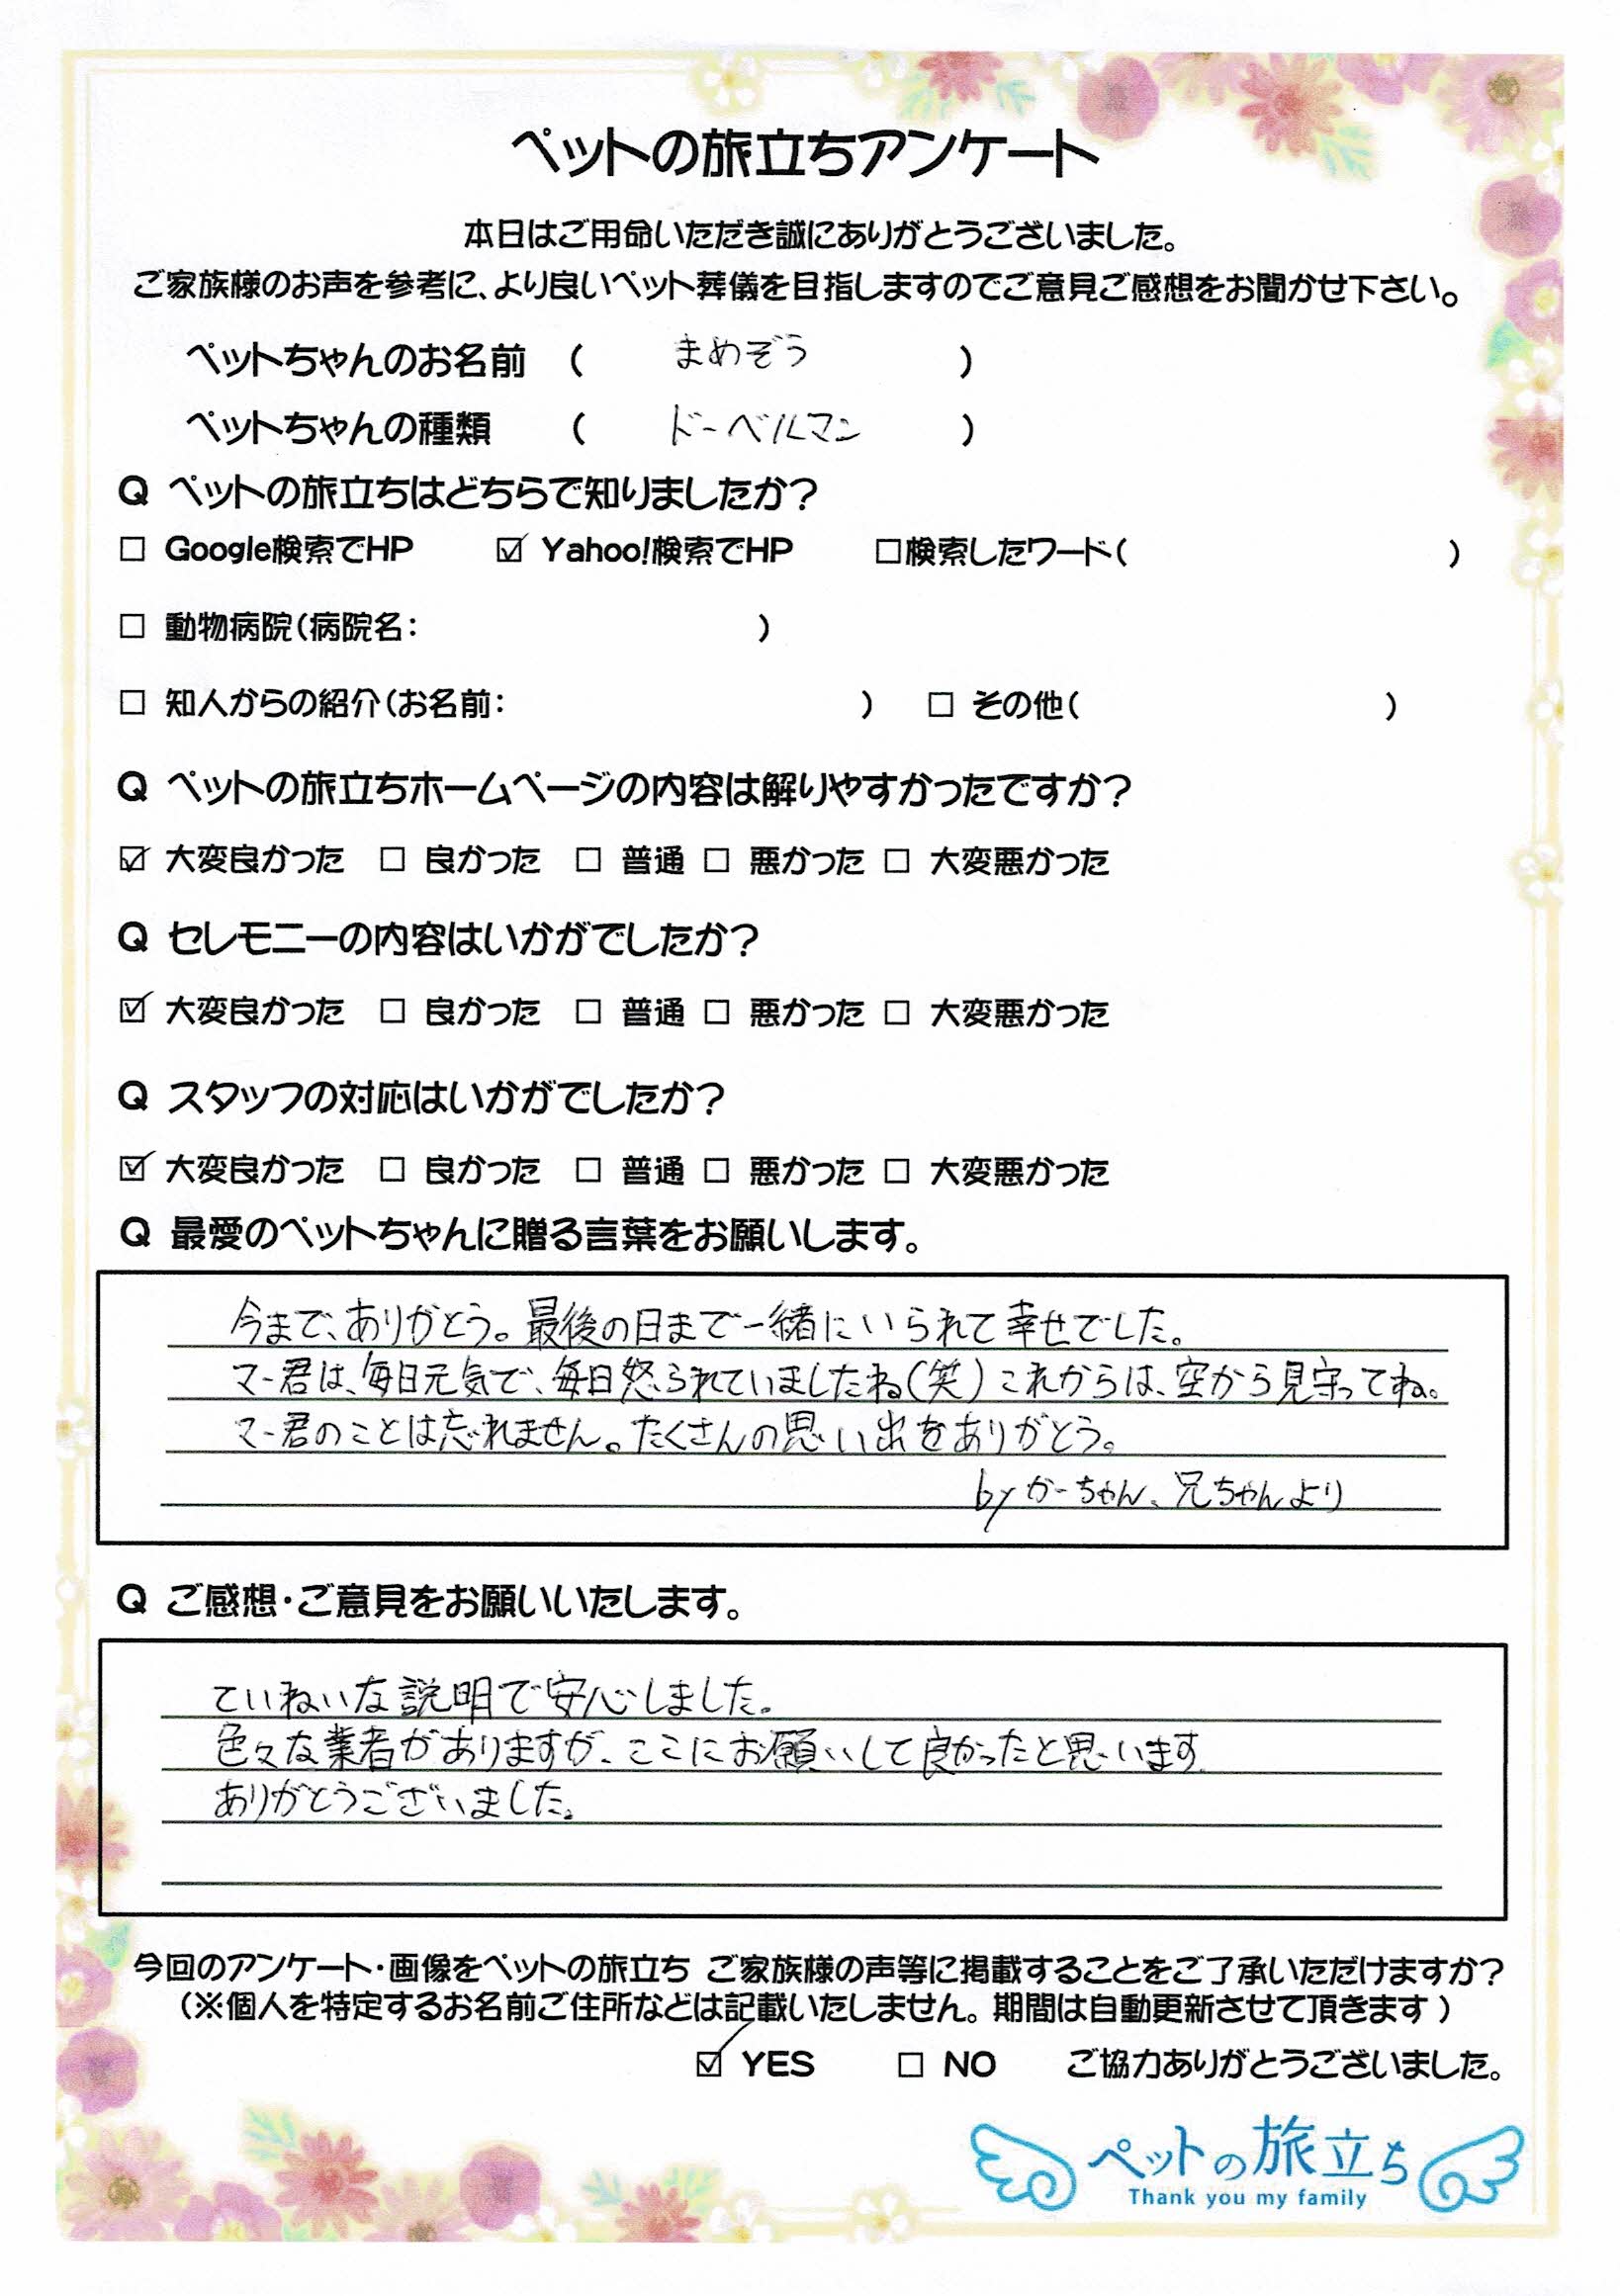 ペットの旅立ちアンケート
本日はご用命いただき誠にありがとうございました。
ご家族様のお声を参考に、より良いペット葬儀を目指しますのでご意見ご感想をお聞かせ下さい。
ペットちゃんのお名前 ( まめぞう )
ペットちゃんの種類 ( ドーベルマン )
Q ペットの旅立ちはどちらで知りましたか?
□ Google検索でHP ☑ Yahoo!検索でHP □検索したワード( )
□ 動物病院(病院名: )
□ 知人からの紹介(お名前: ) □ その他( )
Q ペットの旅立ちホームページの内容は解りやすかったですか?
☑ 大変良かった □ 良かった □ 普通 □ 悪かった □ 大変悪かった
Q セレモニーの内容はいかがでしたか?
☑ 大変良かった □ 良かった □ 普通 □ 悪かった □ 大変悪かった
Q スタッフの対応はいかがでしたか?
☑ 大変良かった □ 良かった □ 普通 □ 悪かった □ 大変悪かった
Q 最愛のペットちゃんに贈る言葉をお願いします。
今まで、ありがとう。最後の日まで一緒にいられて幸せでした。
マー君は、毎日元気で、毎日怒られていましたね(笑)これからは、空から見守ってね。
マー君のことは忘れません。たくさんの思い出をありがとう。
by かーちゃん、兄ちゃんより
Q ご感想・ご意見をお願いいたします。
ていねいな説明で安心しました。
色々な業者がありますが、ここにお願いして良かったと思います。
ありがとうございました。
今回のアンケート・画像をペットの旅立ち ご家族様の声等に掲載することをご了承いただけますか?
(※個人を特定するお名前ご住所などは記載いたしません。期間は自動更新させて頂きます)
☑ YES □ NO ご協力ありがとうございました。
ペットの旅立ち
Thank you my family